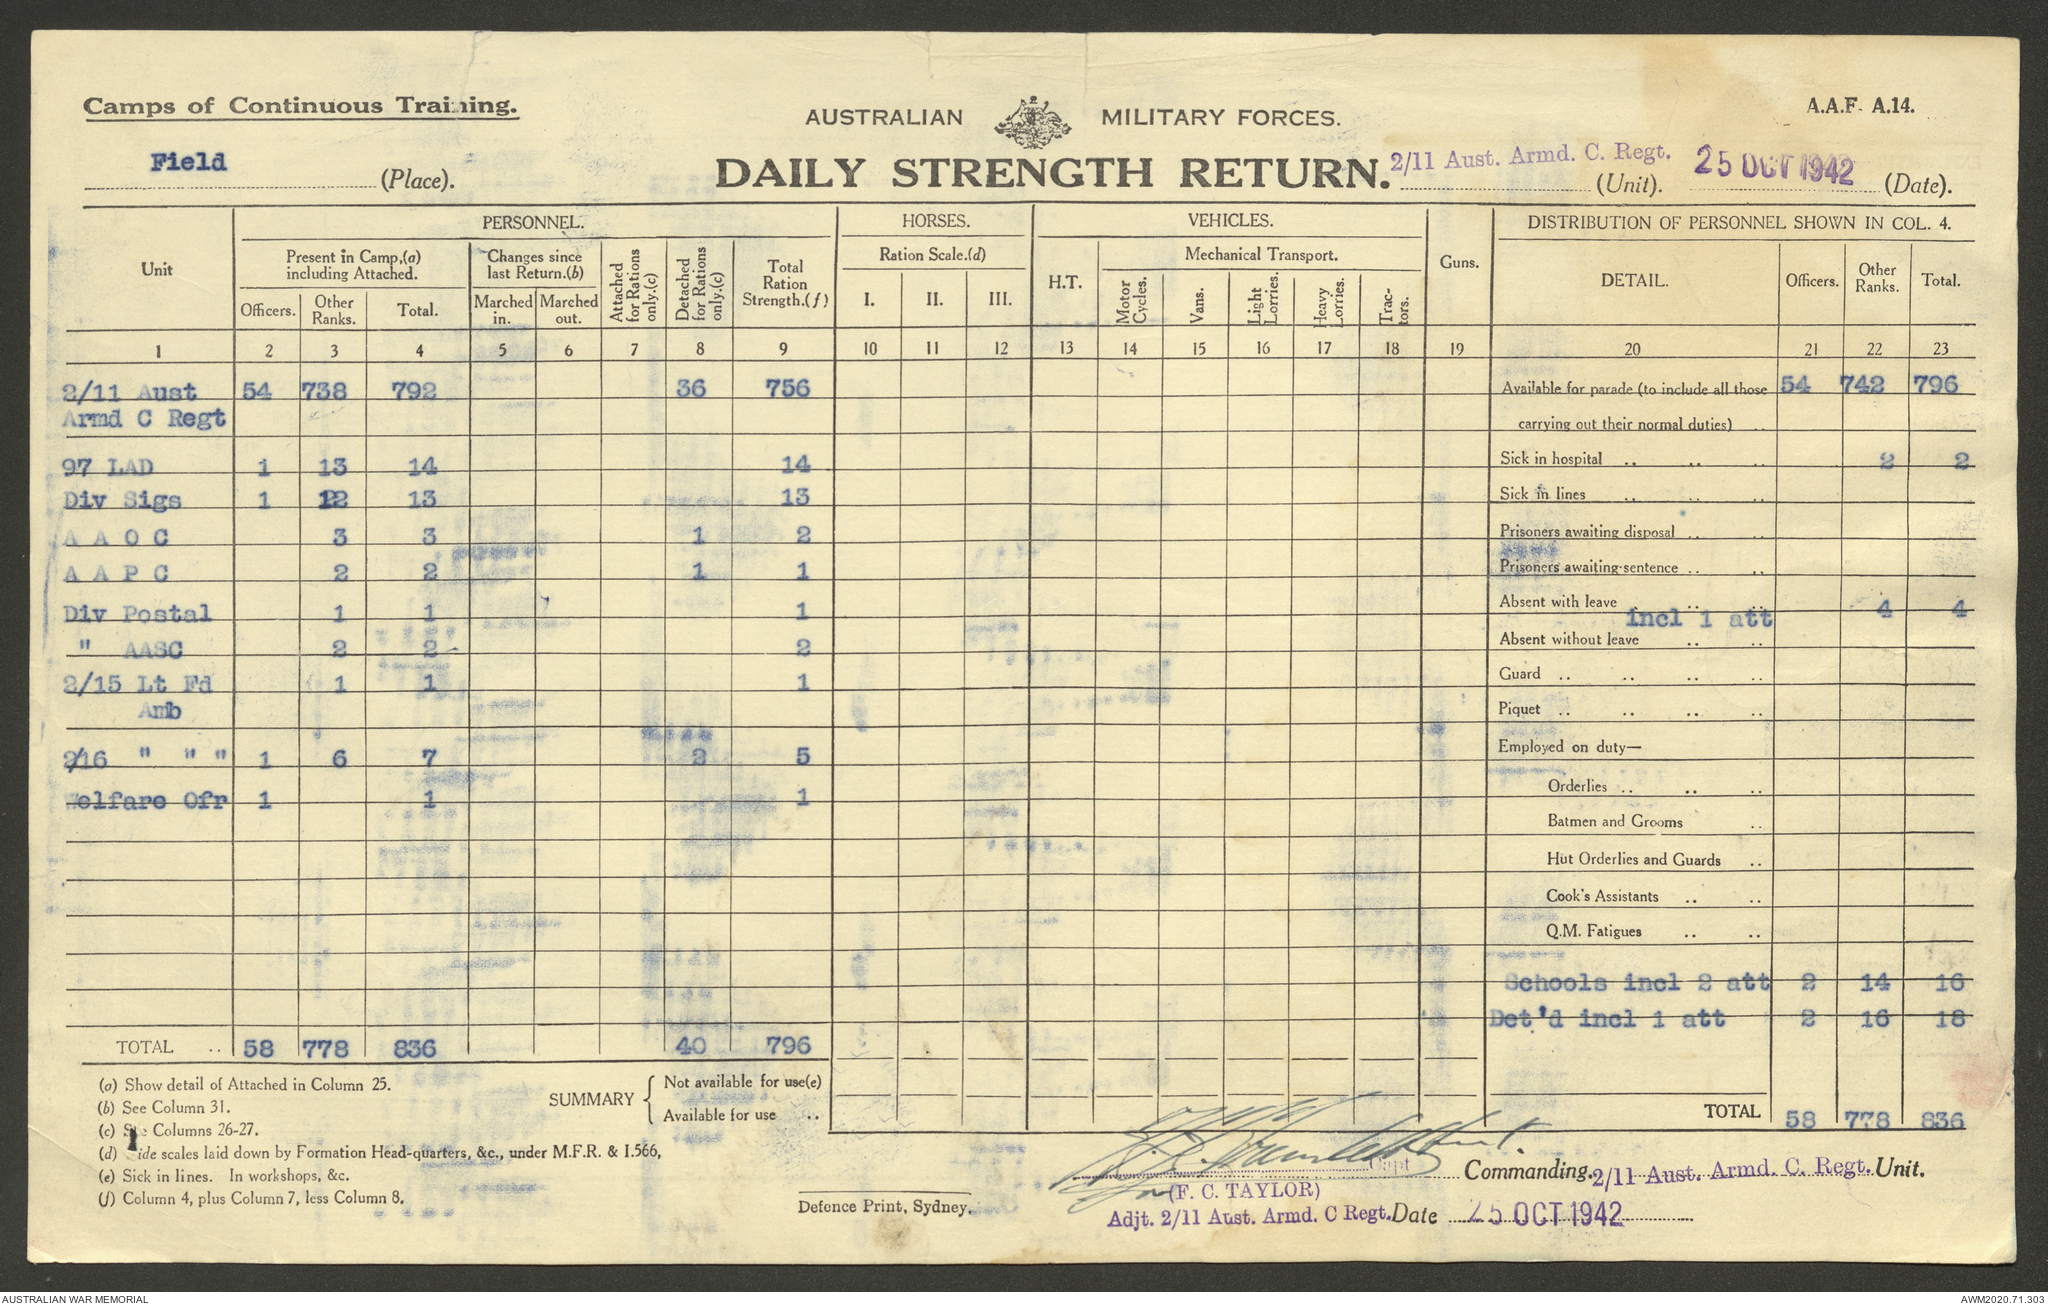 Camps of Continuous Training.
AUSTRALIAN MILITARY FORCES.
A.A.F. A.14.
Field (Place).
DAILY STRENGTH RETURN.
2/11 Aust. Armd. C. Regt. (Unit). 25 OCT 1942 (Date).
PERSONNEL. HORSES. VEHICLES. DISTRIBUTION OF PERSONNEL SHOWN IN COL. 4.
Unit
Present in Camp,(a) including Attached.
Officers. Other Ranks. Total.
Changes since last Return.(b)
Marched in. Marched out.
Attached for Rations only.(c)
Detached for Rations only.(c)
Total Ration Strength.(f)
Ration Scale.(d)
I. II. III.
H.T.
Mechanical Transport.
Motor Cycles. Vans. Light Lorries. Heavy Lorries. Tractors.
Guns.
DETAIL. Officers. Other Ranks. Total.
1 2 3 4 5 6 7 8 9 10 11 12 13 14 15 16 17 18 19 20 21 22 23
2/11 Aust 54 738 792 36 756
Armd C Regt
97 LAD 1 13 14 14
Div Sigs 1 12 13 13
A A O C 3 3 1 2
A A P C 2 2 1 1
Div Postal 1 1 1
" AASC 2 2 2
2/15 Lt Fd 1 1 1
Amb
2/16 " " " 1 6 7 2 5
Welfare Ofr 1 1 1
TOTAL .. 58 778 836 40 796
Available for parade (to include all those 54 742 796
carrying out their normal duties) ..
Sick in hospital .. .. .. 2 2
Sick in lines .. .. ..
Prisoners awaiting disposal .. ..
Prisoners awaiting sentence .. ..
Absent with leave .. .. incl 1 att 4 4
Absent without leave .. ..
Guard .. .. .. ..
Piquet .. .. .. ..
Employed on duty—
Orderlies .. .. ..
Batmen and Grooms ..
Hut Orderlies and Guards ..
Cook's Assistants .. ..
Q.M. Fatigues .. ..
Schools incl 2 att 2 14 16
Det'd incl 1 att 2 16 18
TOTAL 58 778 836
(a) Show detail of Attached in Column 25.
(b) See Column 31.
(c) See Columns 26-27.
(d) ide scales laid down by Formation Head-quarters, &c., under M.F.R. & I.566,
(e) Sick in lines. In workshops, &c.
(f) Column 4, plus Column 7, less Column 8.
SUMMARY { Not available for use(e)
Available for use ..
Defence Print, Sydney.
Capt Commanding. 2/11 Aust. Armd. C. Regt. Unit.
for (F. C. TAYLOR)
Adjt. 2/11 Aust. Armd. C Regt. Date 25 OCT 1942
AUSTRALIAN WAR MEMORIAL
AWM2020.71.303